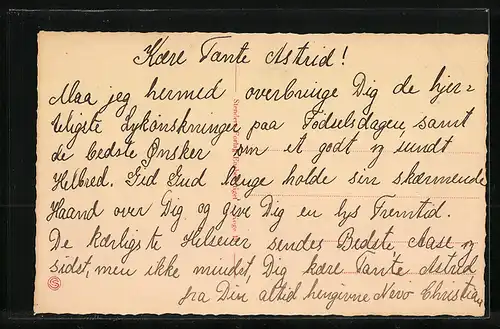 Kære Tante Astrid!
Maa jeg hermed overbringe Dig de hjer=
teligste Lykønskninger paa Fødselsdagen, samt
de bedste Ønsker om et godt og sundt
Helbred. Gid Gud længe holde sin skærmende
Haand over Dig og give Dig en lys Fremtid.
De kærligste Hilsener sendes Bedste Aase og
sidst, men ikke mindst, Dig kære Tante Astrid
fra Din altid hengivne Nevø Christian